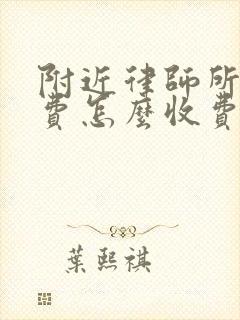 附近律師所
費怎麼收費
葉熙祺